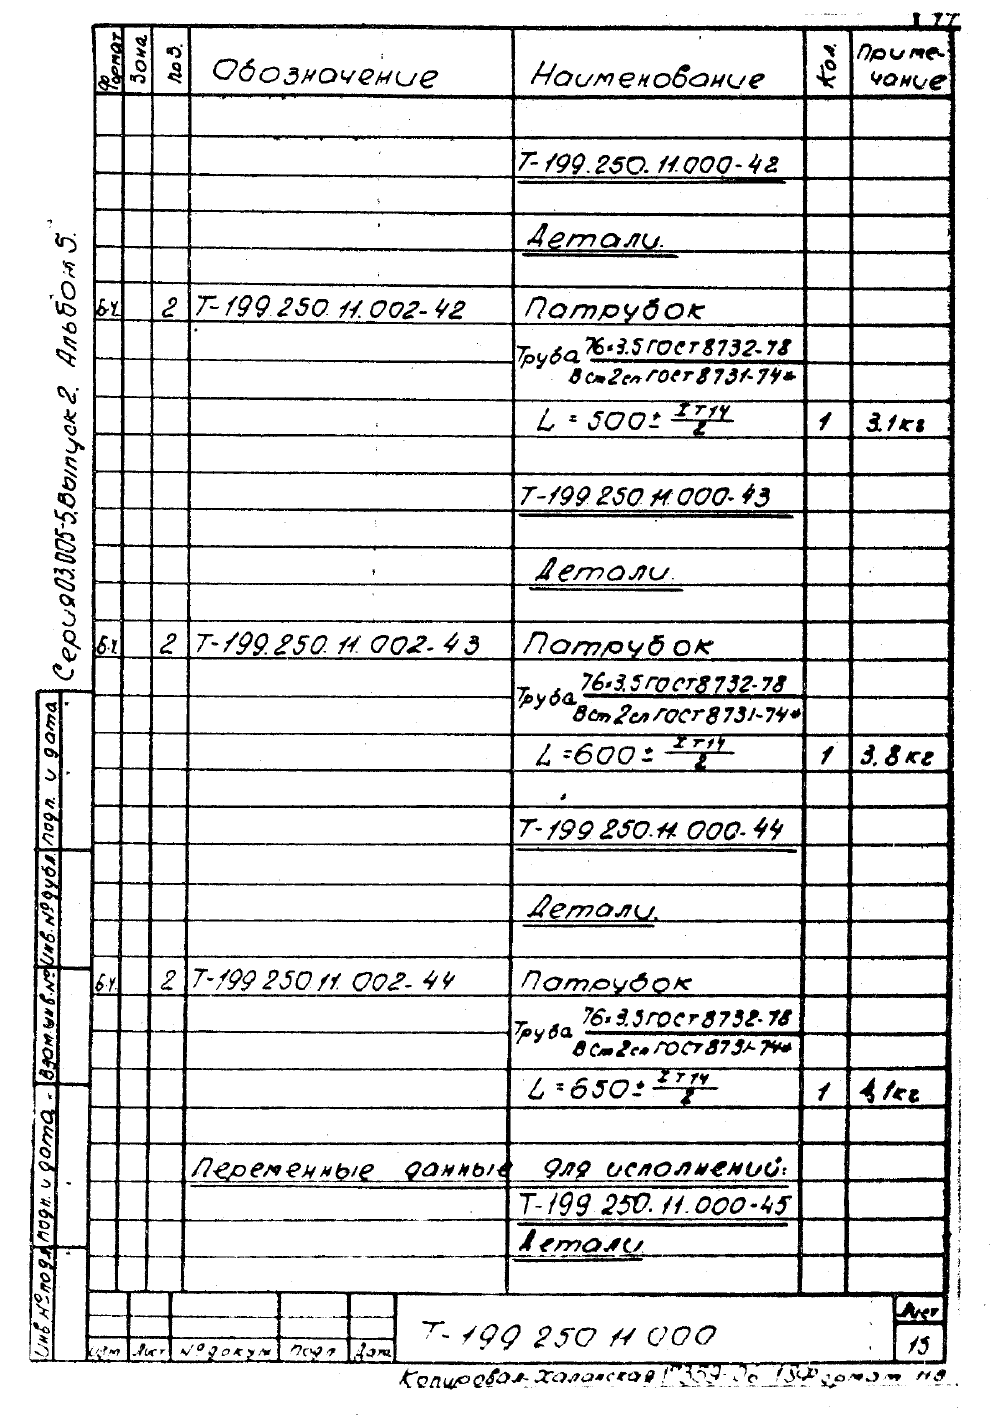 Формат Зона Поз. Обозначение Наименование Кол. Приме-
чание
Т-199.250.11.000-42
Детали.
Б.Ч. 2 Т-199.250.11.002-42 Патрубок
Труба 76×3.5 ГОСТ 8732-78
В ст 2 сп ГОСТ 8731-74*
L = 500 ± IT14/2 1 3.1 кг
Т-199 250.11.000-43
Детали.
Б.Ч. 2 Т-199.250.11.002-43 Патрубок
Труба 76×3.5 ГОСТ 8732-78
В ст 2 сп ГОСТ 8731-74*
L = 600 ± IT14/2 1 3.8 кг
Т-199.250.11.000-44
Детали.
Б.Ч. 2 Т-199 250.11.002-44 Патрубок
Труба 76×3.5 ГОСТ 8732-78
В ст 2 сп ГОСТ 8731-74*
L = 650 ± IT14/2 1 4.1 кг
Переменные данные для исполнений:
Т-199 250.11.000-45
Детали
Серия 03.005-5, Выпуск 2. Альбом 5.
Подп. и дата
Инв. № дубл.
Взам инв. №
Подп. и дата
Инв. № подл.
изм Лист № докум Подп Дата
Т-199 250 11 000
Лист
15
Копировал Халанская Формат